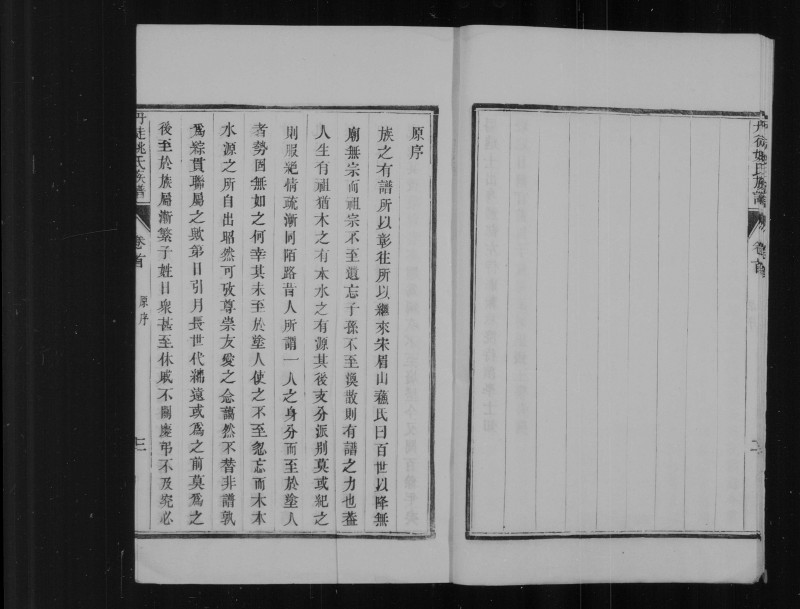 丹徒姚氏族譜
卷首
原序
族之有譜所以彰徃所以繼來宋眉山蘓氏曰百世以降無
廟無宗而祖宗不至遺忘子孫不至渙散則有譜之力也葢
人生有祖猶木之有本水之有源其後支分派别莫或紀之
則服絕情疏漸同陌路昔人所謂一人之身分而至於塗人
者勢固無如之何幸其未至於塗人使之不至忽忘而木本
水源之所自出昭然可攷尊崇友愛之念藹然不替非譜孰
爲綜貫聯屬之歟第日引月長世代遞遠或爲之前莫爲之
後至於族屬漸繁子姓日衆甚至休戚不關慶弔不及究必
丹徒姚氏族譜
卷首
原序
三